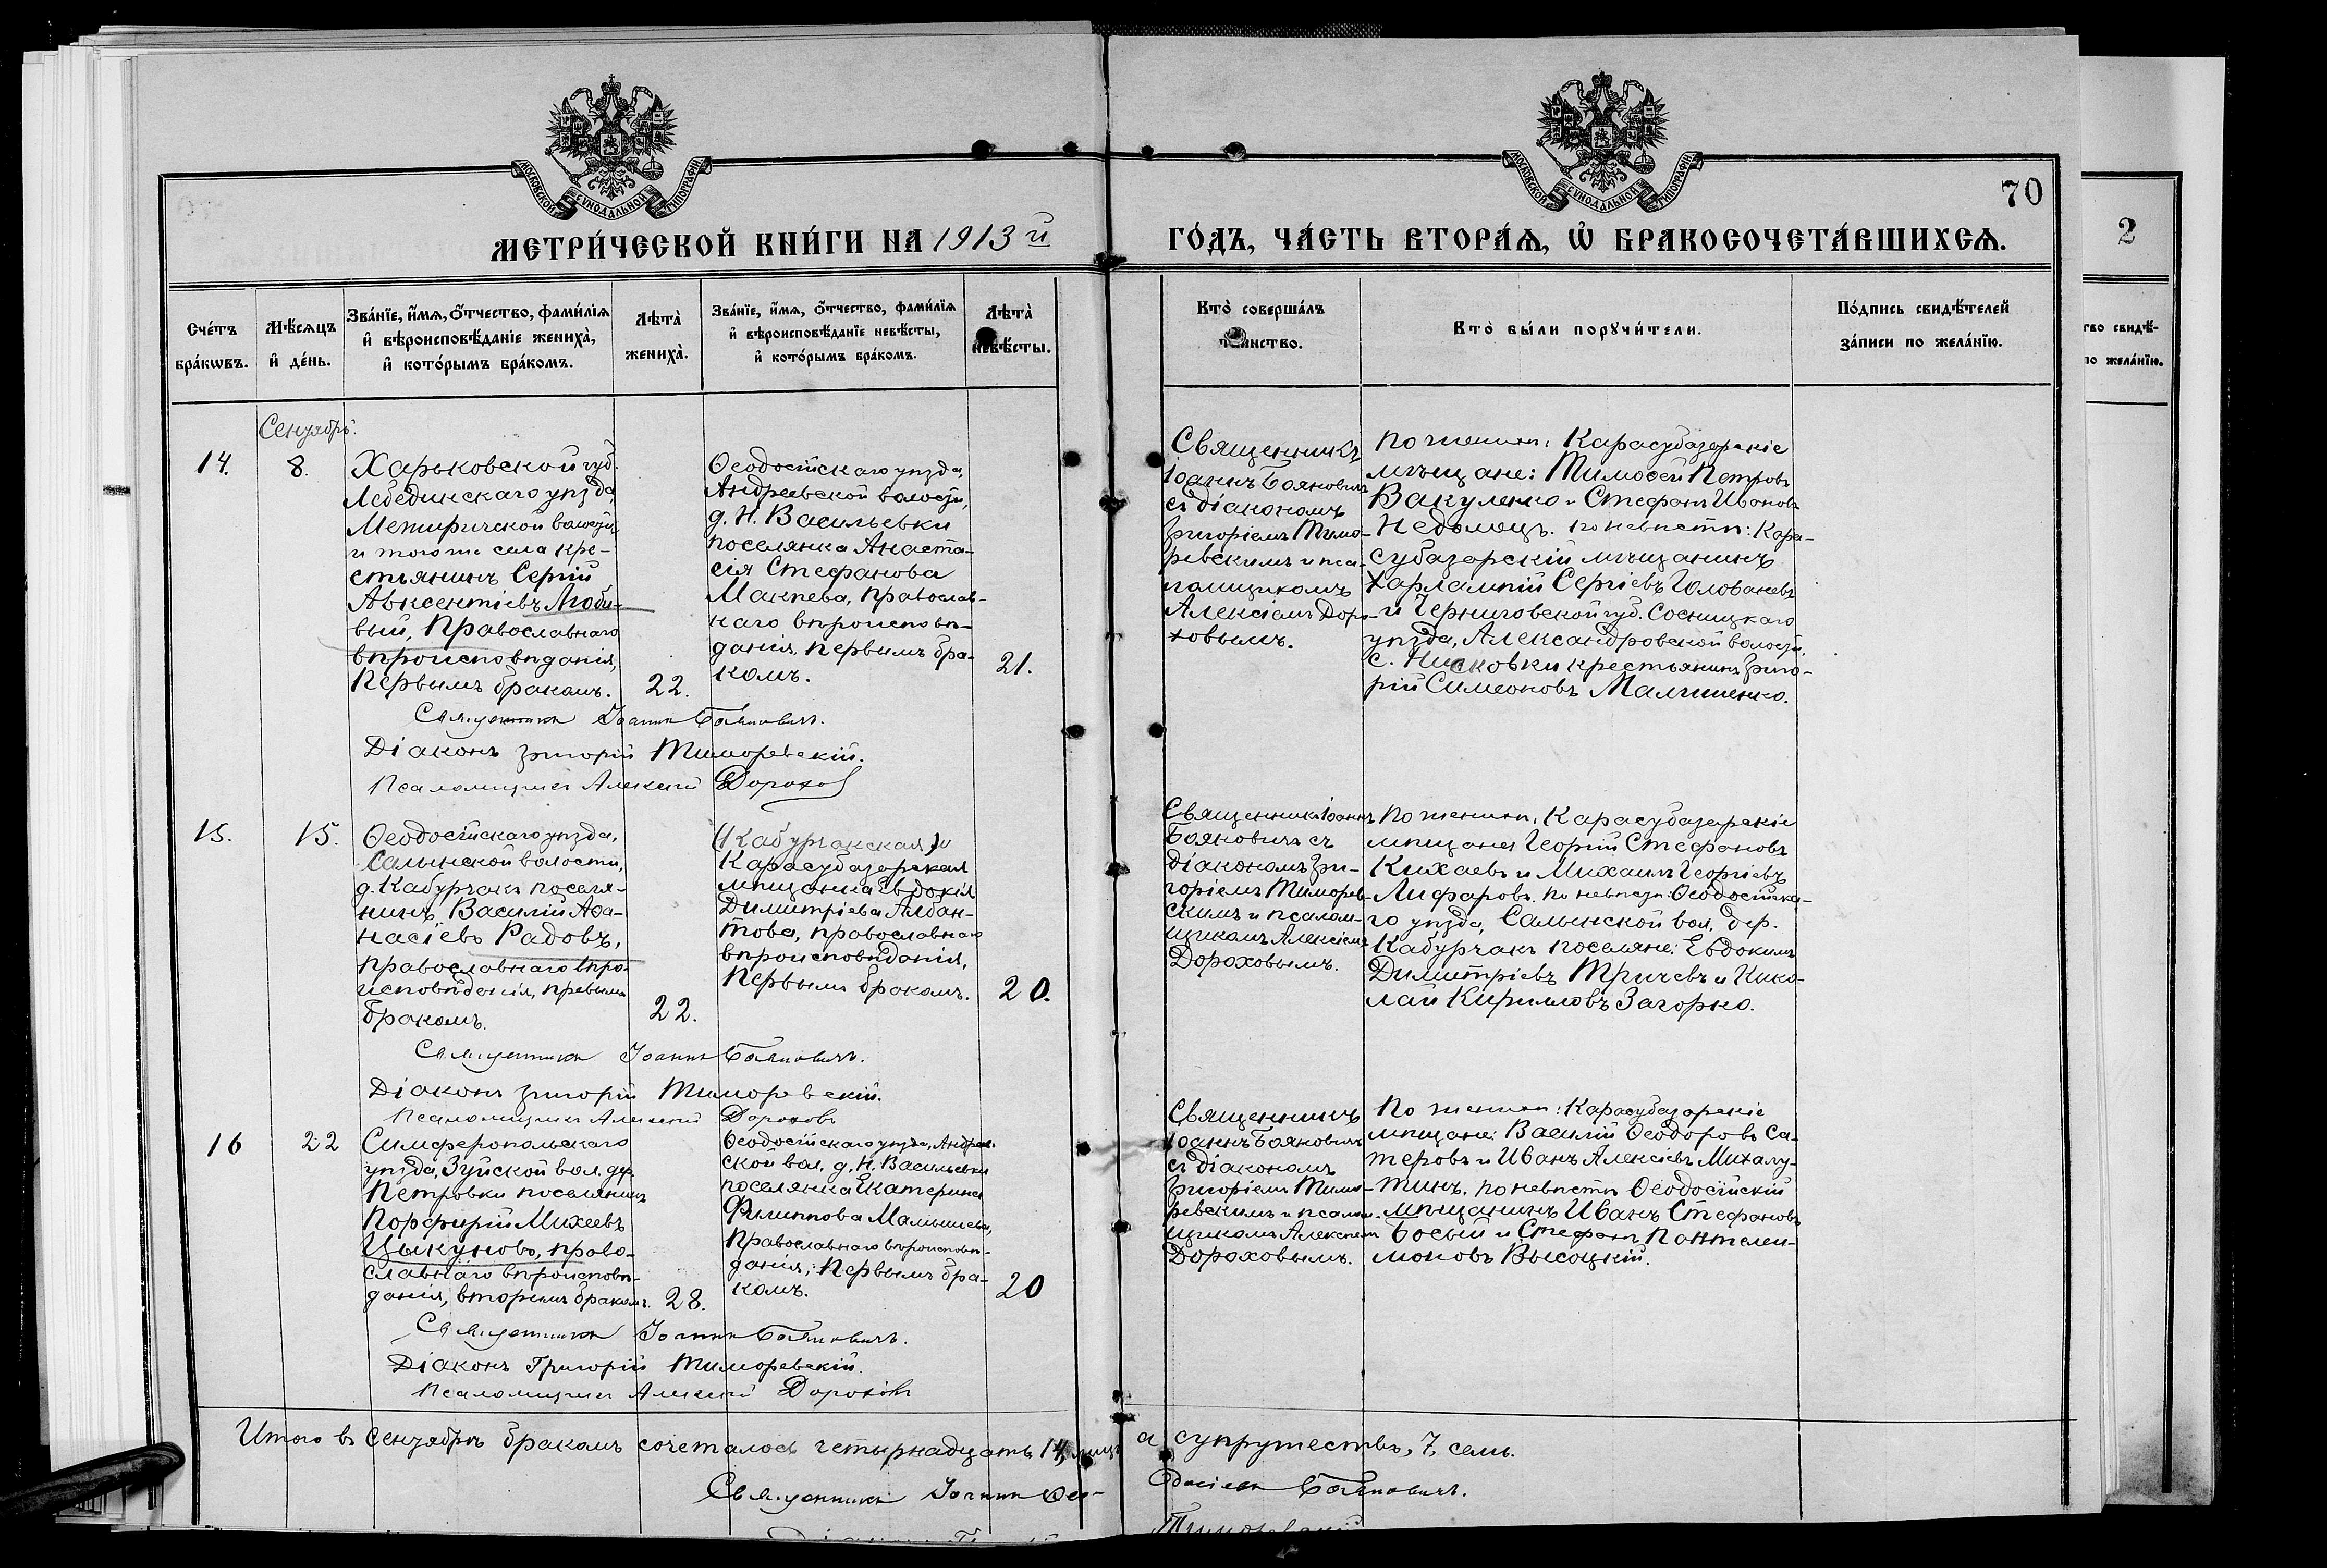 МОСКОВСКОЙ СѴНОДАЛЬНОЙ ТИПОГРАФІИ
МОСКОВСКОЙ СѴНОДАЛЬНОЙ ТИПОГРАФІИ
70
2
МЕТРИ́ЧЕСКОЙ КНИ́ГИ НА 1913 й
ГО́ДЪ, ЧА́СТЬ ВТОРА́Ѧ, Ѡ҆ БРАКОСОЧЕТА́ВШИХСѦ.
Сче́тъ бра́кѡвъ.
Мѣ́сѧцъ и҆ де́нь.
Зва́нїе, и҆́мѧ, ѻ҆́тчество, фами́лїѧ
и҆ вѣроисповѣ́данїе жениха̀,
и҆ кото́рымъ бра́комъ.
Лѣта̀ жениха̀.
Зва́нїе, и҆́мѧ, ѻ҆́тчество, фами́лїѧ
и҆ вѣроисповѣ́данїе невѣ́сты,
и҆ кото́рымъ бра́комъ.
Лѣта̀ невѣ́сты.
Кто̀ соверша́лъ
та́инство.
Кто̀ бы́ли порꙋчи́тели.
По́дпись свидѣ́телей
за́писи по жела́нїю.
тво свидѣ́-
по жела́нїю.
Сентябрь.
14.
8.
Харьковской губ.
Лебединскаго уѣзда,
волости
и того же села кре-
стьянинъ Сергій
Авксентіевъ Люби-
вый, Православнаго
вѣроисповѣданія,
Первымъ бракомъ.
22.
Ѳеодосійскаго уѣзда,
Андреевской волости,
д. Н. Васильевки
поселянка Анаста-
сія Стефанова
Макѣева, Православ-
наго вѣроисповѣ-
данія, первымъ бра-
комъ.
21.
Священникъ
Іоаннъ Бояновичъ
съ діакономъ
Григоріемъ Тимо-
ревскимъ и пса-
ломщикомъ
Алексіемъ Доро-
ховымъ.
По женихѣ: Карасубазарскіе
мѣщане: Тимоѳей Петровъ
Вакуленко и Стефанъ Ивановъ
по невѣстѣ: Кара-
субазарскій мѣщанинъ
Харлампій Сергіевъ Головачевъ
и Черниговской губ. Сосницкаго
уѣзда, Александровской волости,
с. крестьянинъ Григо-
рій Симеоновъ Малишенко.
Священникъ Іоаннъ Бояновичъ.
Діаконъ Григорій Тиморевскій.
Псаломщикъ Алексій Дорохов
15.
15.
Ѳеодосійскаго уѣзда,
Салынской волости,
д. Кабурчакъ поселя-
нинъ Василій Аѳа-
насіевъ Радовъ,
православнаго вѣро-
исповѣданія, первымъ
бракомъ.
22.
(Кабурчакская)
Карасубазарская
мѣщанка Евдокія
Димитріева Албан-
това, православнаго
вѣроисповѣданія,
Первымъ бракомъ.
20.
Священникъ Іоаннъ
Бояновичъ съ
діакономъ Гри-
горіемъ Тиморев-
скимъ и псалом-
щикомъ Алексіемъ
Дороховымъ.
По женихѣ: Карасубазарскіе
мѣщане Георгій Стефановъ
Кихаевъ и Михаилъ Георгіевъ
Лифаровъ, по невѣстѣ: Ѳеодосійска-
го уѣзда, Салынской вол. дер.
Кабурчакъ поселяне: Евдокимъ
Димитріевъ Тричевъ и Нико-
лай Кирилловъ Загорко.
Священникъ Іоаннъ Бояновичъ.
Діаконъ Григорій Тиморевскій.
Псаломщикъ Алексій Дороховъ
16
22
Симферопольскаго
уѣзда, Зуйской вол. дер.
Петровки поселянинъ
Порфирій Михеевъ
Цыкуновъ, право-
славнаго вѣроисповѣ-
данія, вторымъ бракомъ.
28.
Ѳеодосійскаго уѣзда, Андреев-
ской вол. д. Н. Васильевки
поселянка Екатерина
Филиппова Малышева,
Православнаго вѣроисповѣ-
данія, первымъ бра-
комъ.
20
Священникъ
Іоаннъ Бояновичъ
съ діакономъ
Григоріемъ Тимо-
ревскимъ и псалом-
щикомъ Алексѣемъ
Дороховымъ.
По женихѣ: Карасубазарскіе
мѣщане: Василій Ѳеодоровъ Са-
теровъ и Иванъ Алексіевъ Михалу-
тинъ, по невѣстѣ Ѳеодосійскій
мѣщанинъ Иванъ Стефановъ
Босый и Стефанъ Пантелеи-
моновъ Высоцкій.
Священникъ Іоаннъ Бояновичъ.
Діаконъ Григорій Тиморевскій.
Псаломщикъ Алексій Дороховъ
Итого въ Сентябрѣ бракомъ сочеталось четырнадцать 14, лицъ а супружествъ, 7, семь.
Священникъ Іоаннъ Ѳео-досіевъ Бояновичъ.